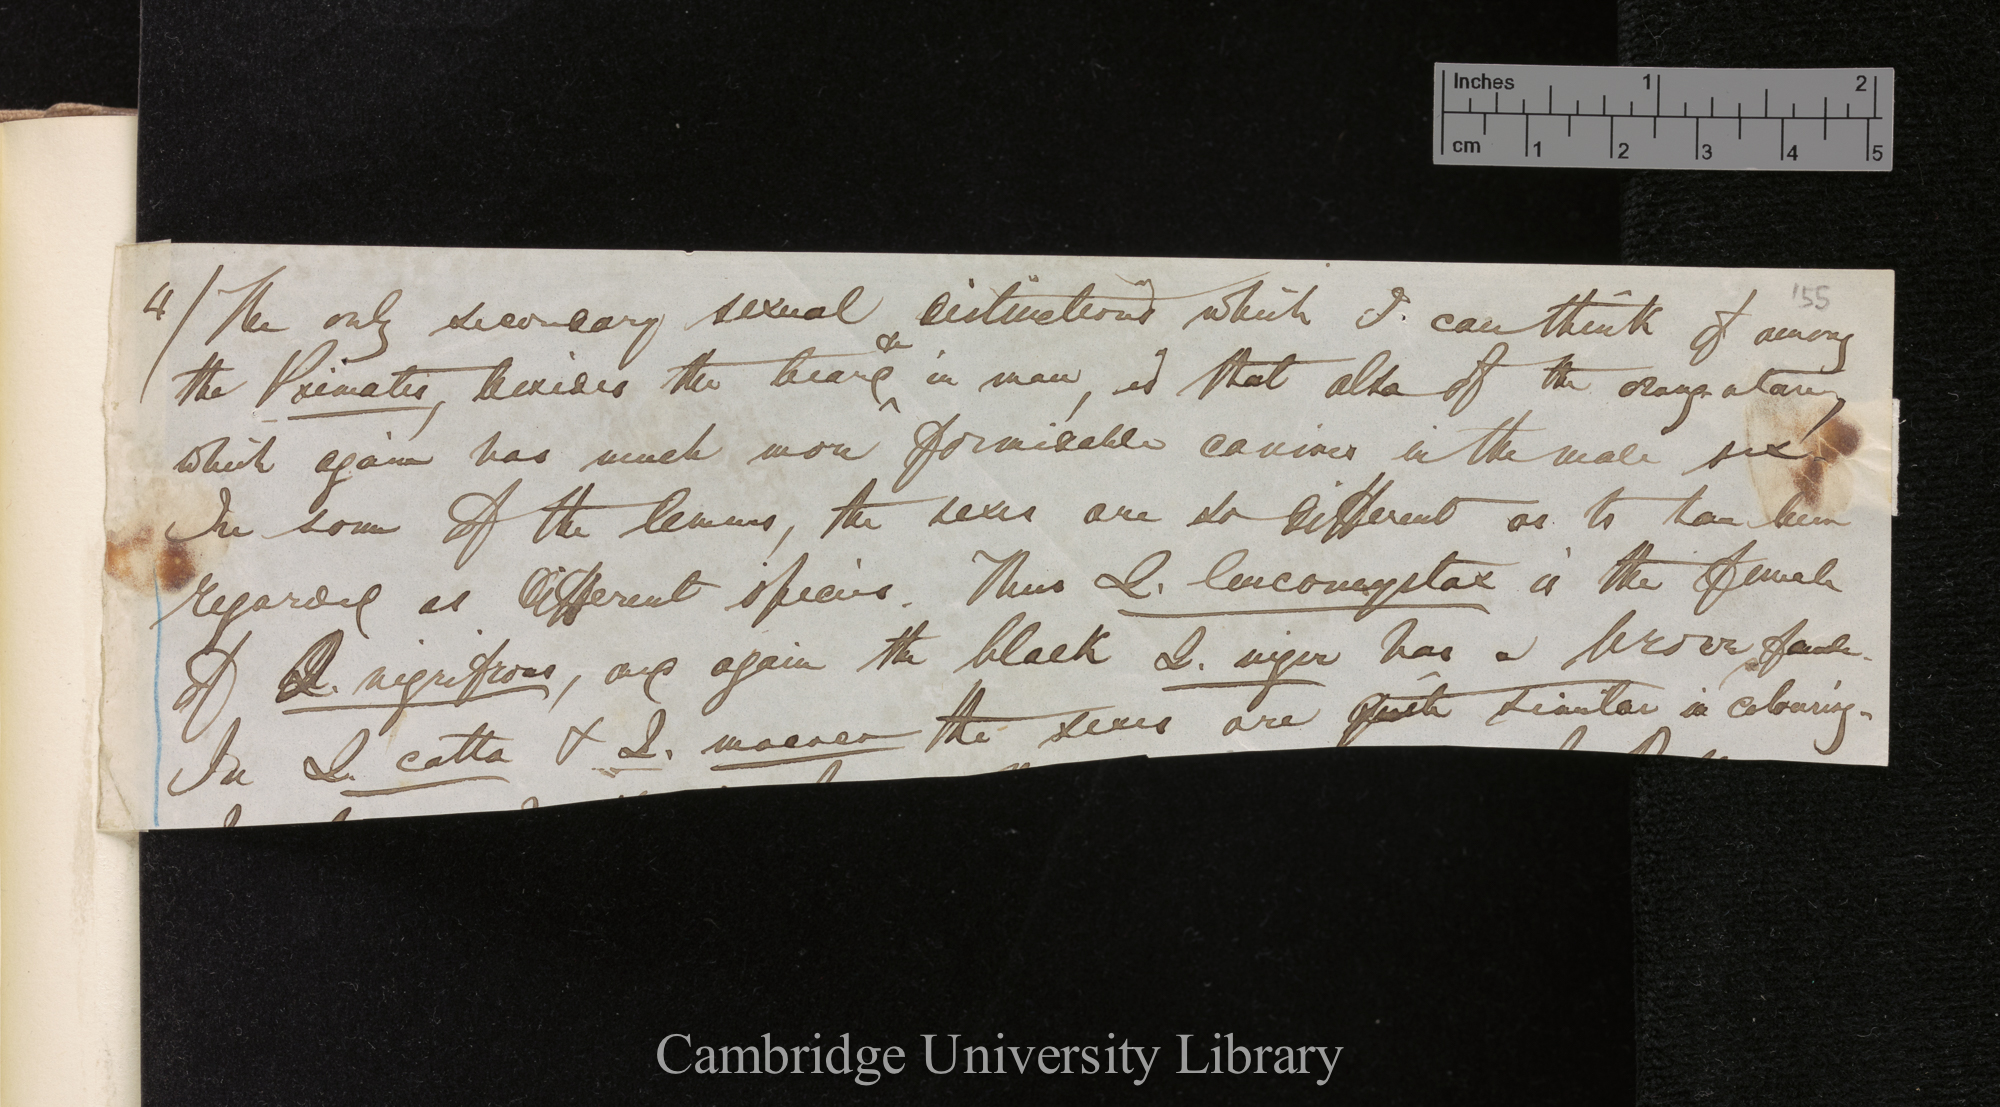 Inches 1 2
cm 1 2 3 4 5
155
4/ The only secondary sexual distinctions which I can think of among
the Primates, besides the beard &c in man, is that also of the orang-utan,
which again has much more formidable canines in the male sex.
In some of the lemurs, the sexes are so different as to have been
regarded as different species. Thus L. leucomystax is the female
of L. nigrifrons, and again the black L. niger has a brown female.
In L. catta & L. macaco the sexes are quite similar in colouring.
Cambridge University Library